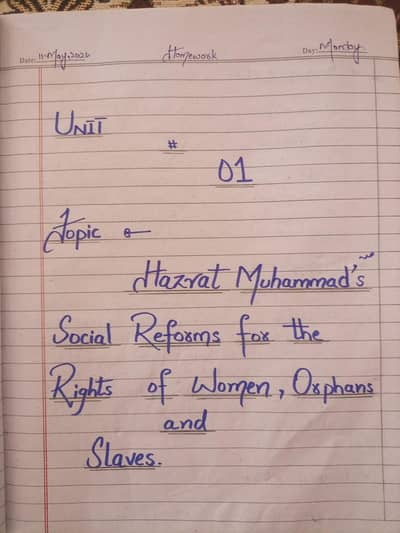 Date: 11-May,2026 Homework Day: Monday
UNIT
#
01
Topic :-
Hazrat Muhammad's
Social Reforms for the
Rights of Women, Orphans
and
Slaves.